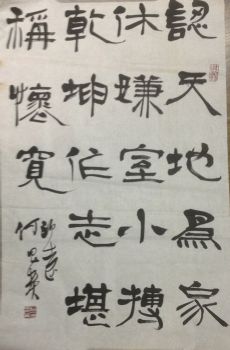 認天地爲家
休嫌室小摶
乾坤作志堪
稱懷寬
何